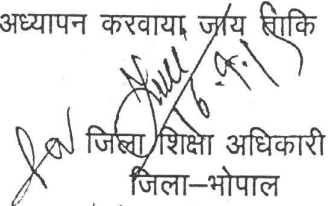 अध्यापन करवाया जाय ताकि
for
जिला शिक्षा अधिकारी
जिला–भोपाल